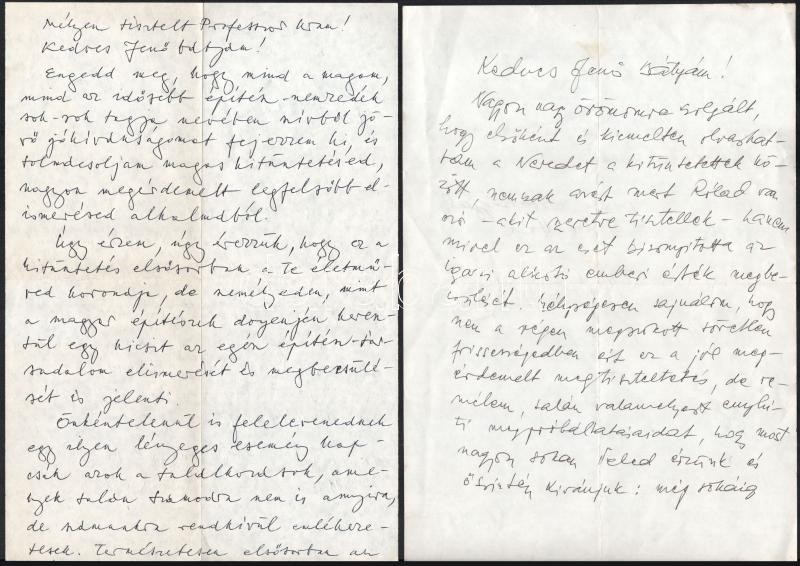 Mélyen tisztelt Professzor Uram!
Kedves Jenő bátyám!
Engedd meg, hogy mind a magam,
mind az idősebb építész-nemzedék
sok-sok tagja nevében szívből jö-
vő jókívánságomat fejezzem ki, és
tolmácsoljam magas kitüntetésed,
nagyon megérdemelt legfelsőbb el-
ismerésed alkalmából.
Úgy érzem, úgy érezzük, hogy ez a
kitüntetés elsősorban a Te életmű-
ved koronája, de személyeden, mint
a magyar építészek doyenjén keresz-
tül egy kicsit az egész építész-tár-
sadalom elismerését és megbecsülé-
sét is jelenti.
Önkéntelenül is felelevenednek
egy ilyen lényeges esemény kap-
csán azok a találkozások, ame-
lyek talán számodra nem is annyira,
de számunkra rendkívül emlékeze-
tesek. Természetesen elsősorban az
Kedves Jenő Bátyám!
Nagyon nagy örömömre szolgált,
hogy elsőként és kiemelten olvashat-
tam a Nevedet a kitüntetettek kö-
zött, nemcsak azért mert Rólad van
szó - akit szeretve tisztellek - hanem
mivel ez az eset bizonyította az
igazi alkotói emberi érték megbe-
csülését. sajnálom, hogy
nem a régen megszokott töretlen
frissességedben ért ez a jól meg-
érdemelt megtiszteltetés, de re-
mélem, talán valamelyest enyhí-
ti megpróbáltatásaidat, hogy most
nagyon sokan Veled érzünk és
őszintén kívánjuk: még sokáig